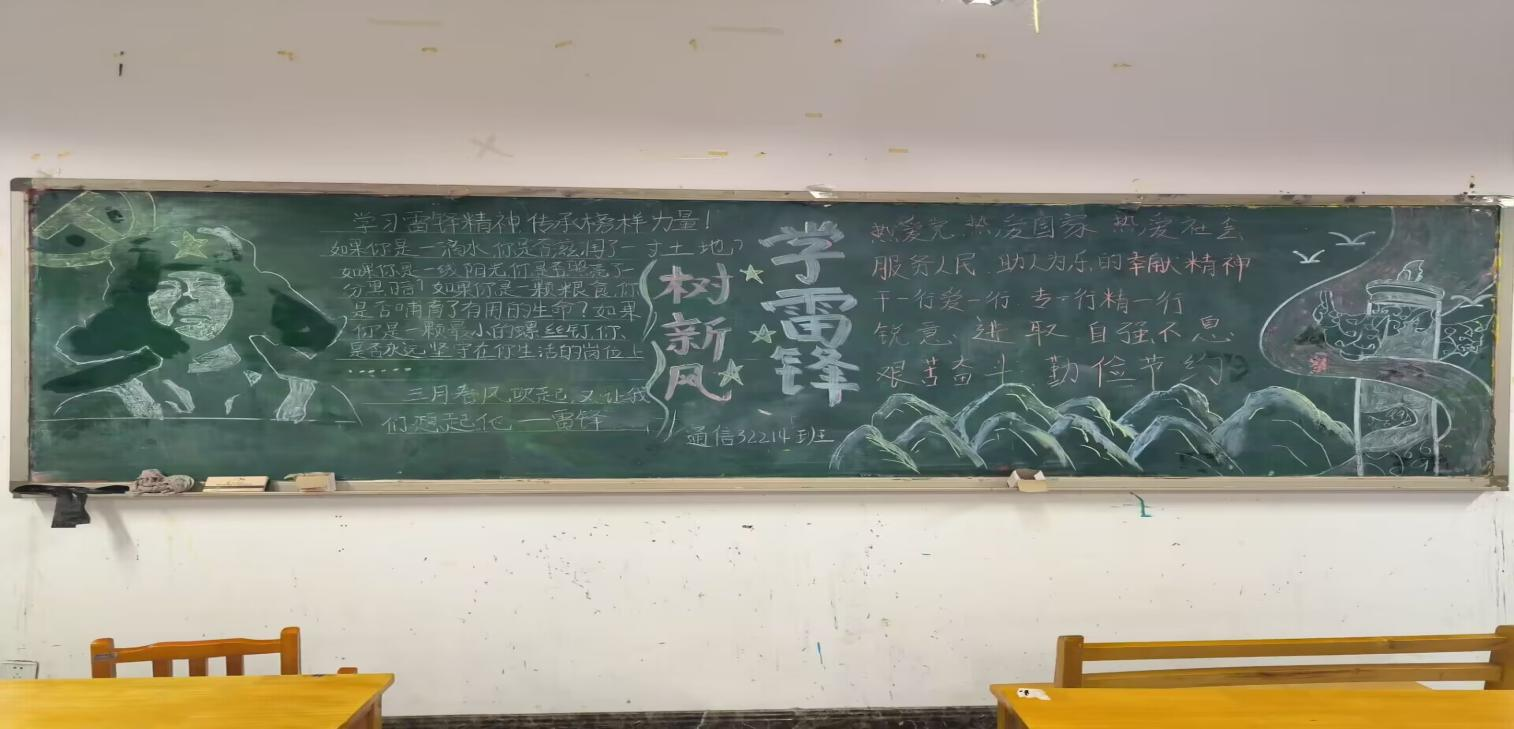 学习雷锋精神,传承榜样力量!
如果你是一滴水,你是否滋润了一寸土地?
如果你是一线阳光,你是否照亮了一
分黑暗?如果你是一颗粮食,你
是否哺育了有用的生命?如果
你是一颗最小的螺丝钉,你
是否永远坚守在你生活的岗位上
……
三月春风吹起,又让我
们想起他—雷锋
树新风
学雷锋
通信32214班
热爱党 热爱国家 热爱社会
服务人民、助人为乐的奉献精神
干一行爱一行 专一行精一行
锐意进取 自强不息
艰苦奋斗 勤俭节约